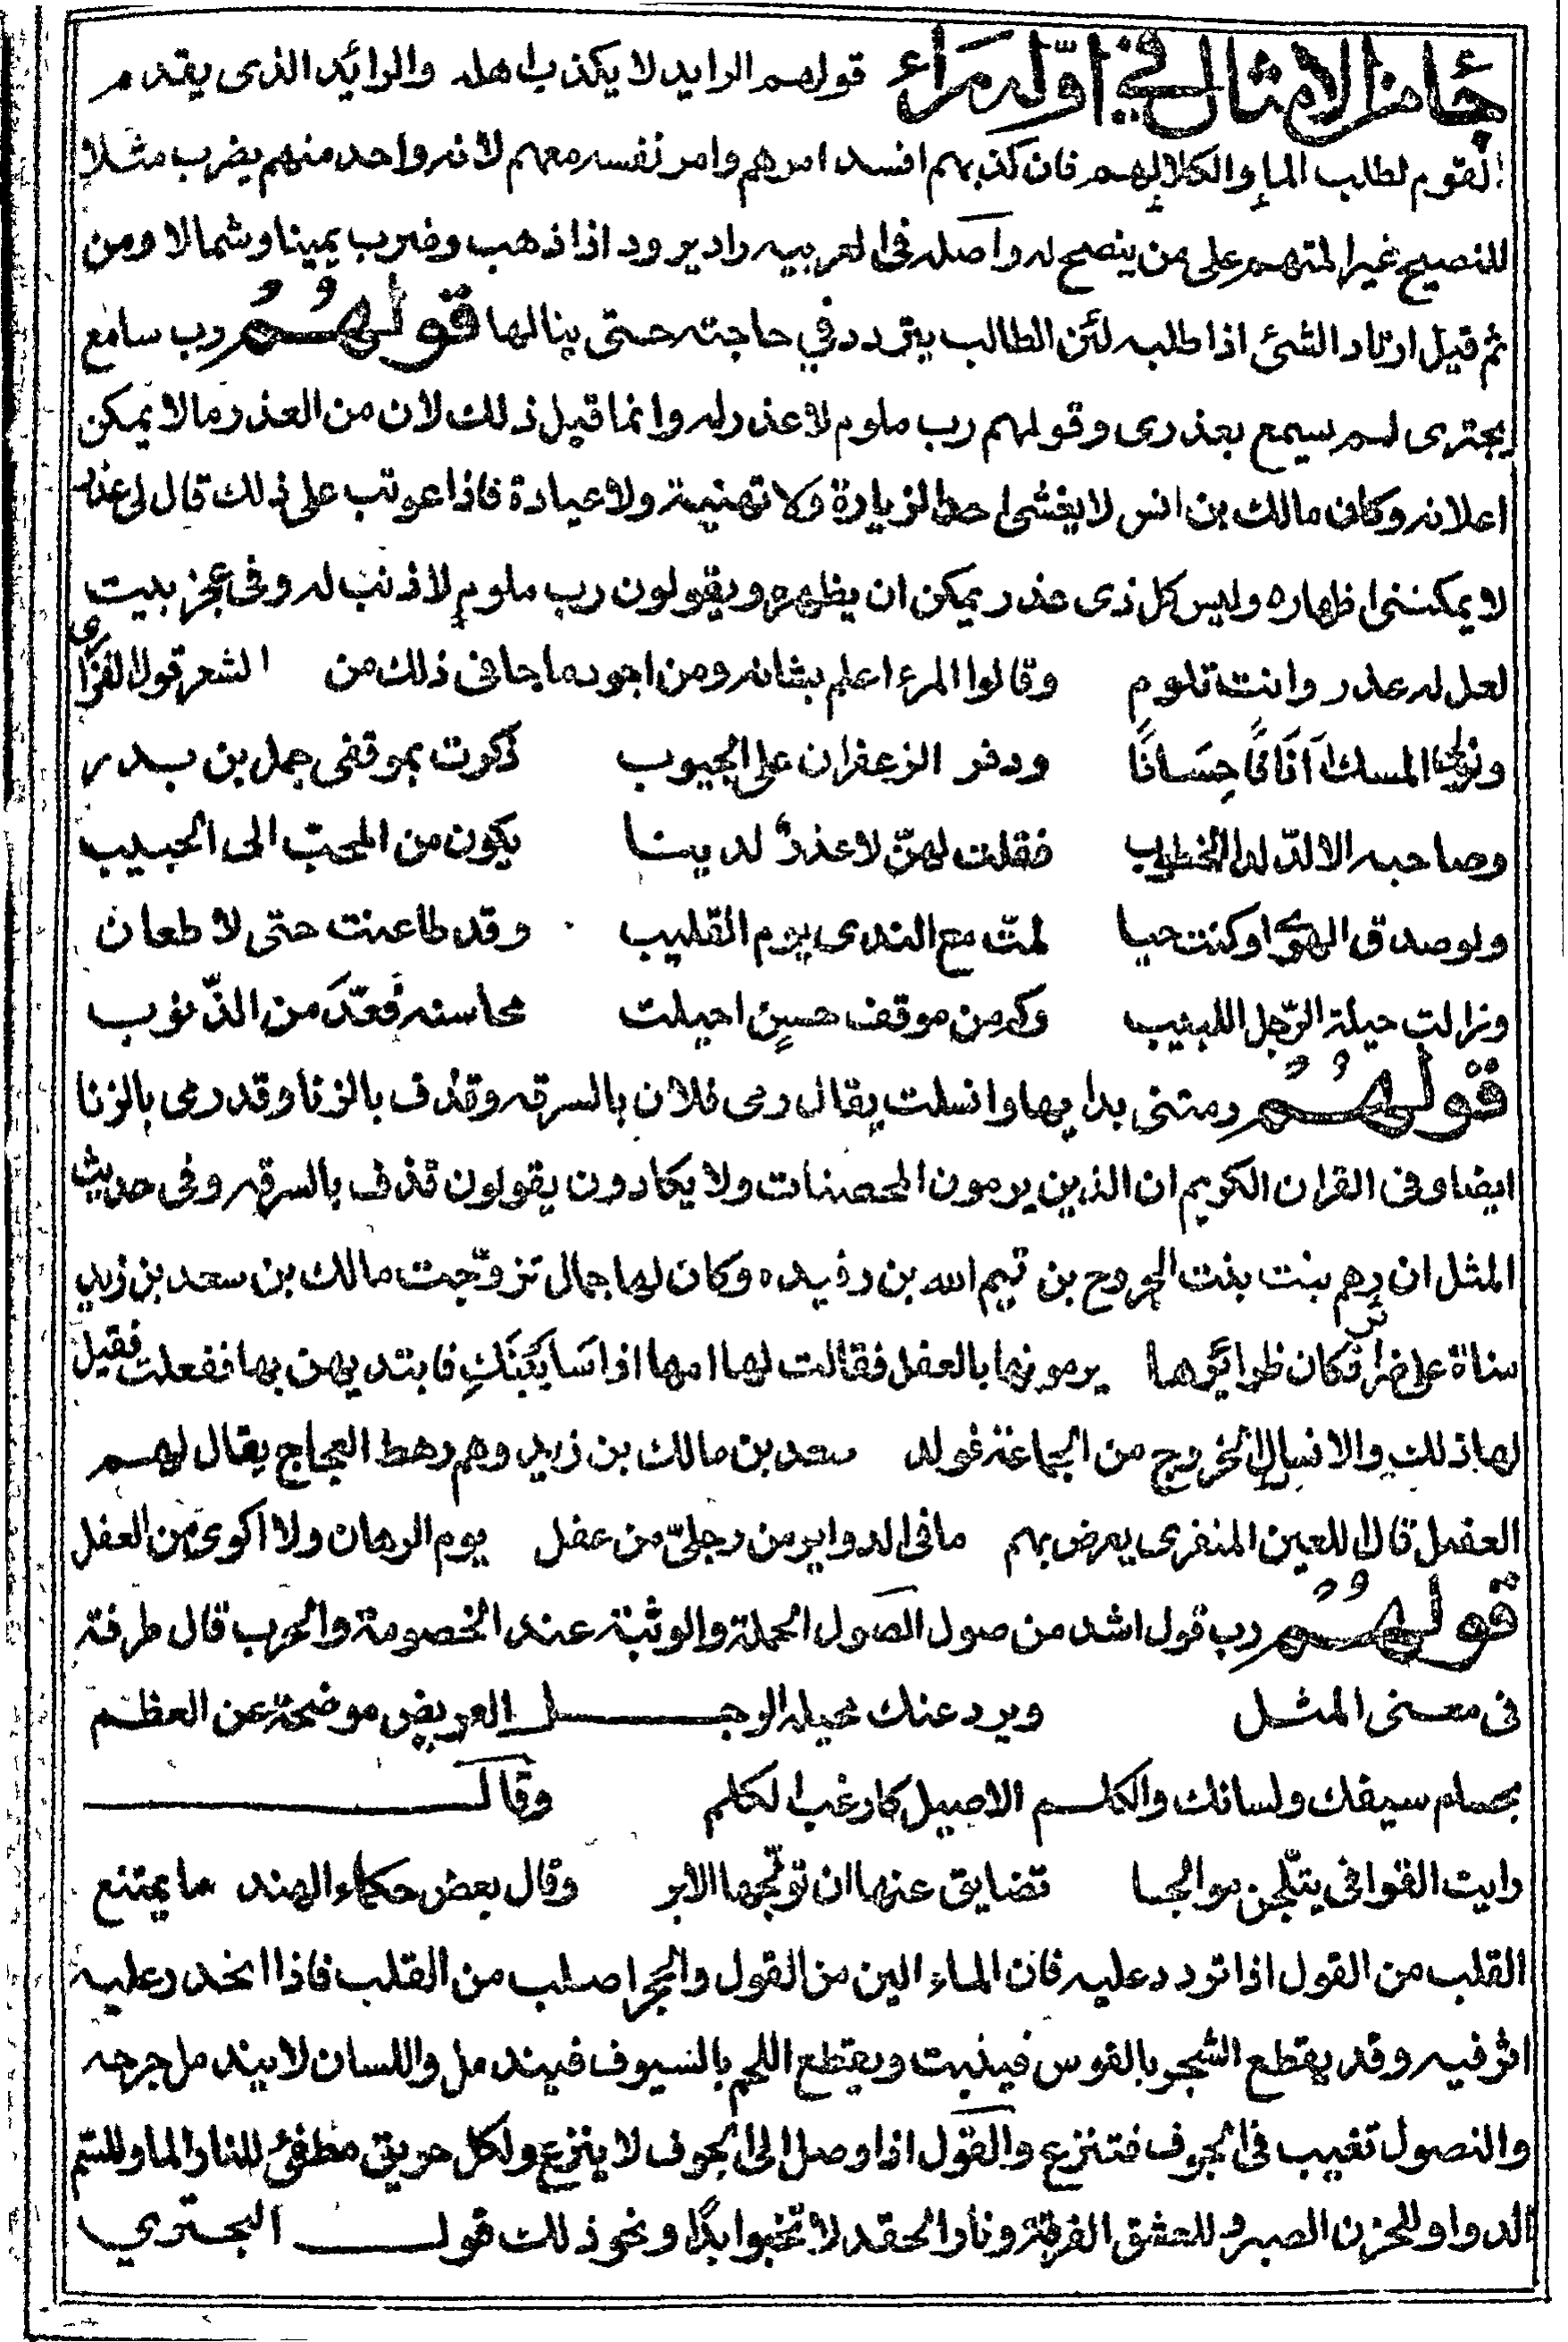 جا من الامثال في اوله راء قولهم الرايد لا يكذب اهله والرائد الذى يقدم
القوم لطلب الماء والكلا لهم فان كذبهم افسد امرهم وامر نفسه معهم لانه واحد منهم يضرب مثلا
للنصيح غير المتهم على من ينصح له واصله فى العربيه راد يرود اذا ذهب وضرب يمينا وشمالا ومن
ثم قيل ارتاد الشئ اذا طلبه لئن الطالب يتردد في حاجته حتى ينالها قولهم رب سامع
بخبرى لم سيمع بعذرى وقولهم رب ملوم لا عذر له وانما قيل ذلك لان من العذر ما لا يمكن
اعلانه وكان مالك بن انس لا يغشى احدا لزيارة ولا تهنية ولا عيادة فاذا عوتب على ذلك قال لى عذر
لا يمكننى اظهاره وليس كل ذى عذر يمكن ان يظهره ويقولون رب ملوم لا ذنب له وفى عجز بيت
لعل له عذر وانت تلوم وقالوا المرء اعلم بشانه ومن اجود ما جا فى ذلك من الشعر قول الفزارى
المسك آنَانًا حِسَانًا ودفر الزعفران على الجيوب ذكرت بموقفى حمل بن بدر
وصاحبه الالدّ لدا الخطوب فقلت لهنّ لا عذرٌ لدينا يكون من المحبّ الى الحبيب
ولو صدق الهوى او كنت حيا لمتّ مع الندى يوم القليب وقد طاعنت حتى لا طعان
ونزالت حيلة الرّجل اللبيب وكم من موقف حسنٍ احيلت محاسنه فعُدَّ من الذّنوب
قولهم رمتنى بدايها وانسلت يقال رمى فلان بالسرقه وقذف بالزنا وقد رمى بالزنا
ايضا وفى القران الكريم ان الذين يرمون المحصنات ولا يكادون يقولون قذف بالسرقه وفى حديث
المثل ان رهم بنت بنت الجروح بن تيم الله بن رفيده وكان لها جمال تزوّجت مالك بن سعد بن زيد
مناة على ضرائر فكان ضرائرها يرمونها بالعفل فقالت لها امها اذا سَابَبْنَكِ فابتديهن بها ففعلت فقيل
لها ذلك والانسلال الخروج من الجماعة فولد سعد بن مالك بن زيد وهم رهط العجاج يقال لهم
العفيل قال اللعين المنقرى يعرض بهم ما فى الدواير من رجلىّ من عفل يوم الرهان ولا اكوى من العفل
قولهم رب قول اشد من صول الصول الحملة والوثبة عند الخصومة والحرب قال طرفة
فى معنى المثل ويرد عنك مخيلة الرجل العريض موضحة عن العظم
بحسام سيفك ولسانك والكلم الاصيل كارغب الكلم وقال
رايت القوافى يتّلجن موالجا تضايق عنها ان تولّجها الابر وقال بعض حكماء الهند ما يمتنع
القلب من القول اذا تردد عليه فان الماء الين من القول والحجر اصلب من القلب فاذا انحدر عليه
اثر فيه وقد يقطع الشجر بالفوس فينبت ويقطع اللحم بالسيوف فيندمل واللسان لا يندمل جرحه
والنصول تغيب فى الجوف فتنزع والقول اذا وصل الى الجوف لا ينزع ولكل حريق مطفئ للنار الما وللسّم
الدوا وللحزن الصبر وللعشق الفرقة ونار الحقد لا تخبوا بدًا ونحو ذلك قول البحتري